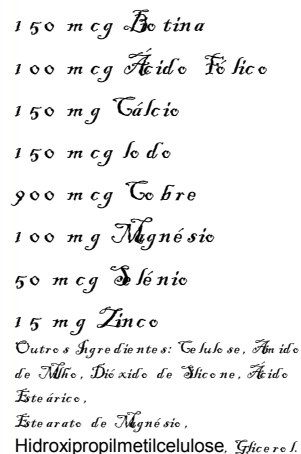 150 mcg Botina
100 mcg Ácido Fólico
150 mg Cálcio
150 mcg Iodo
900 mcg Cobre
100 mg Magnésio
50 mcg Selénio
15 mg Zinco
Outros Ingredientes: Celulose, Amido
de Milho, Dióxido de Silicone, Ácido
Esteárico,
Estearato de Magnésio,
Hidroxipropilmetilcelulose, Glicerol.